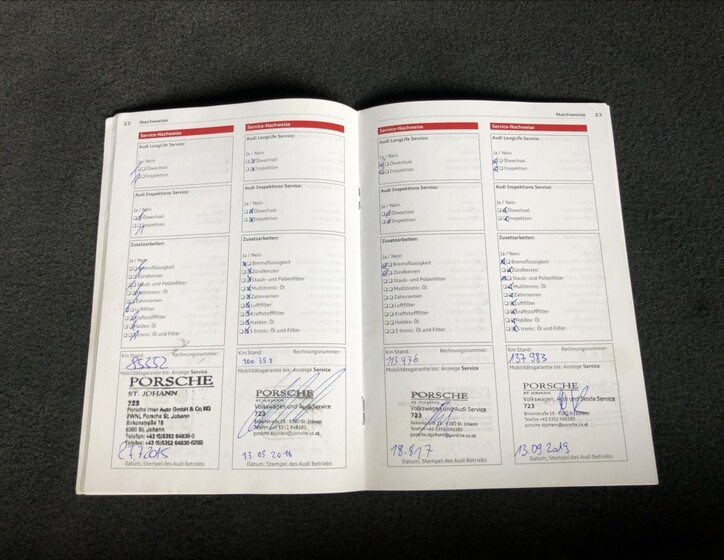 22 Nachweise
Service-Nachweise
Audi LongLife Service:
Ja / Nein
Ölwechsel
Inspektion
Audi Inspektions Service:
Ja / Nein
Ölwechsel
Inspektion
Zusatzarbeiten:
Ja / Nein
Bremsflüssigkeit
Zündkerzen
Staub- und Pollenfilter
Multitronic: Öl
Zahnriemen
Luftfilter
Kraftstofffilter
Haldex: Öl
S tronic: Öl und Filter
Km Stand: Rechnungsnummer:
85352
Mobilitätsgarantie bis: Anzeige Service
PORSCHE
ST. JOHANN
723
Porsche Inter Auto GmbH & Co KG
ZWNL Porsche St. Johann
Birkenstraße 18
6380 St. Johann
Telefon: +43 (0)5352 64838-0
Telefax: +43 (0)5352 64838-6290
27.7.2015
Datum, Stempel des Audi Betriebs
Service-Nachweise
Audi LongLife Service:
Ja / Nein
Ölwechsel
Inspektion
Audi Inspektions Service:
Ja / Nein
Ölwechsel
Inspektion
Zusatzarbeiten:
Ja / Nein
Bremsflüssigkeit
Zündkerzen
Staub- und Pollenfilter
Multitronic: Öl
Zahnriemen
Luftfilter
Kraftstofffilter
Haldex: Öl
S tronic: Öl und Filter
Km Stand: Rechnungsnummer:
100.351
Mobilitätsgarantie bis: Anzeige Service
PORSCHE
ST. JOHANN
Volkswagen und Audi Service
723
13.05.2016
Datum, Stempel des Audi Betriebs
Nachweise 23
Service-Nachweise
Audi LongLife Service:
Ja / Nein
Ölwechsel
Inspektion
Audi Inspektions Service:
Ja / Nein
Ölwechsel
Inspektion
Zusatzarbeiten:
Ja / Nein
Bremsflüssigkeit
Zündkerzen
Staub- und Pollenfilter
Multitronic: Öl
Zahnriemen
Luftfilter
Kraftstofffilter
Haldex: Öl
S tronic: Öl und Filter
Km Stand: Rechnungsnummer:
113.476
Mobilitätsgarantie bis: Anzeige Service
PORSCHE
ST. JOHANN
Volkswagen und Audi Service
723
18.8.17
Datum, Stempel des Audi Betriebs
Service-Nachweise
Audi LongLife Service:
Ja / Nein
Ölwechsel
Inspektion
Audi Inspektions Service:
Ja / Nein
Ölwechsel
Inspektion
Zusatzarbeiten:
Ja / Nein
Bremsflüssigkeit
Zündkerzen
Staub- und Pollenfilter
Multitronic: Öl
Zahnriemen
Luftfilter
Kraftstofffilter
Haldex: Öl
S tronic: Öl und Filter
Km Stand: Rechnungsnummer:
137.983
Mobilitätsgarantie bis: Anzeige Service
PORSCHE
ST. JOHANN
Volkswagen, Audi und Skoda Service
723
13.09.2019
Datum, Stempel des Audi Betriebs